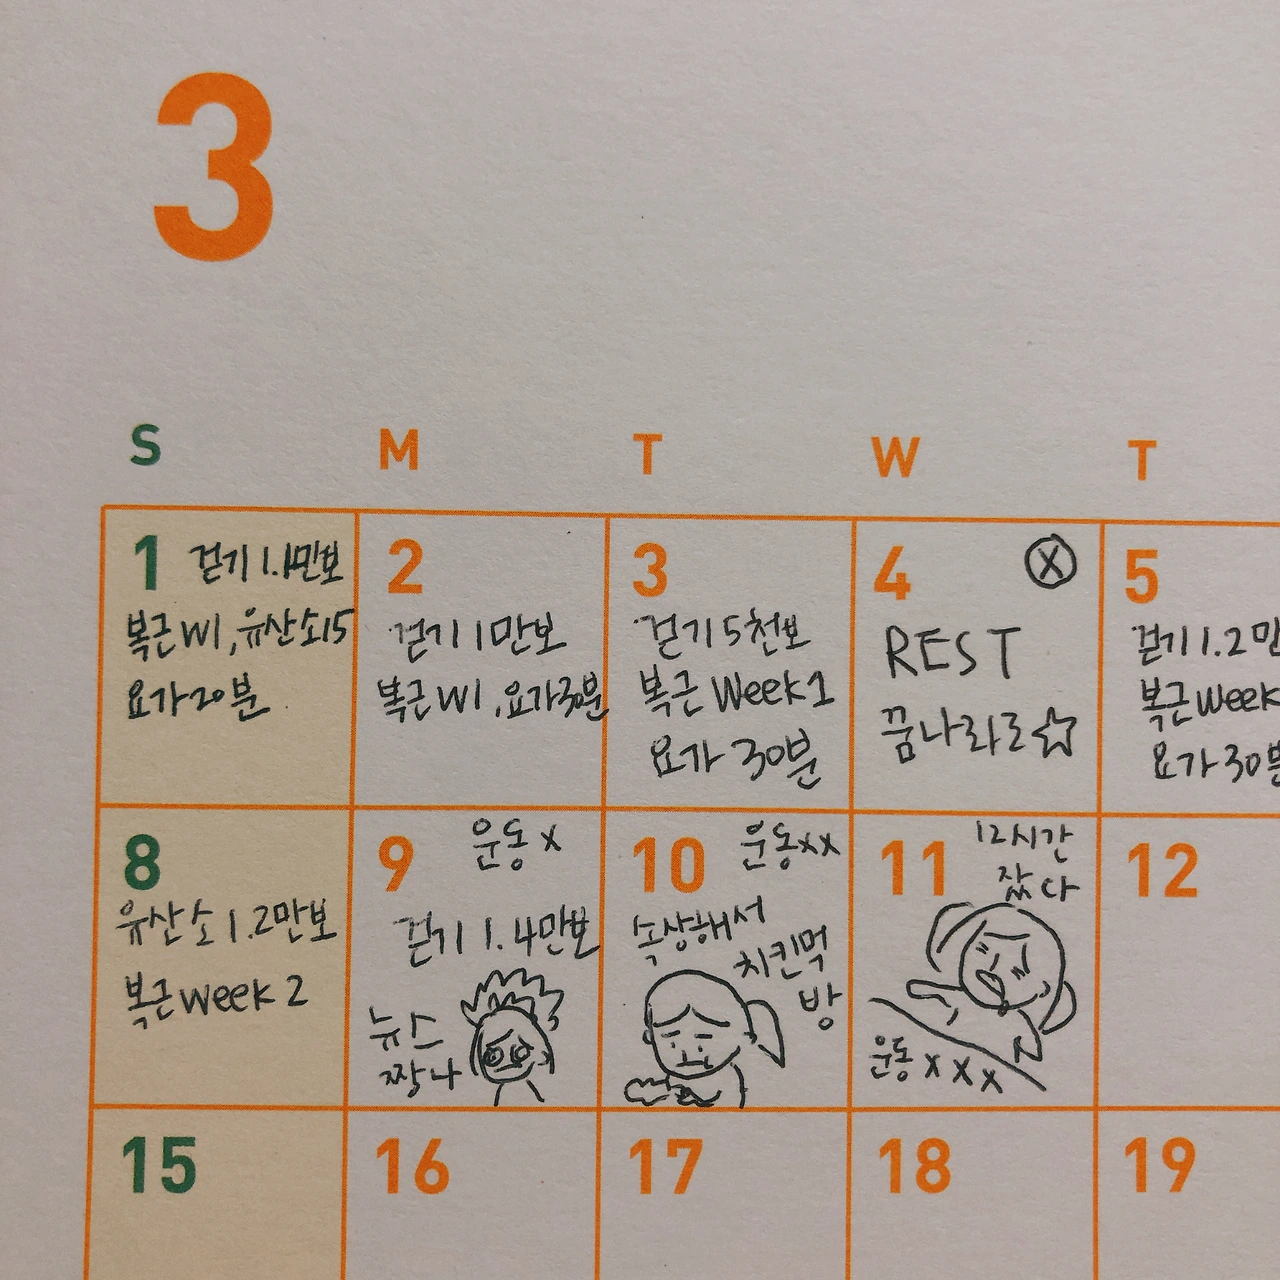 3
S M T W T
1 걷기 1.1만보
복근 W1, 유산소15
요가20분
2
걷기 1만보
복근 W1, 요가30분
3
걷기 5천보
복근 Week1
요가 30분
4 X
REST
꿈나라로☆
5
걷기 1.2만
복근 Week
요가 30분
8
유산소 1.2만보
복근 Week 2
9 운동 x
걷기 1.4만보
뉴스
짱나
10 운동xx
속상해서
치킨먹
방
11 12시간
잤다
운동 x x x
12
15
16
17
18
19